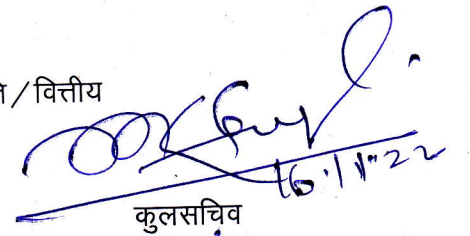 / वित्तीय
16.11.22
कुलसचिव